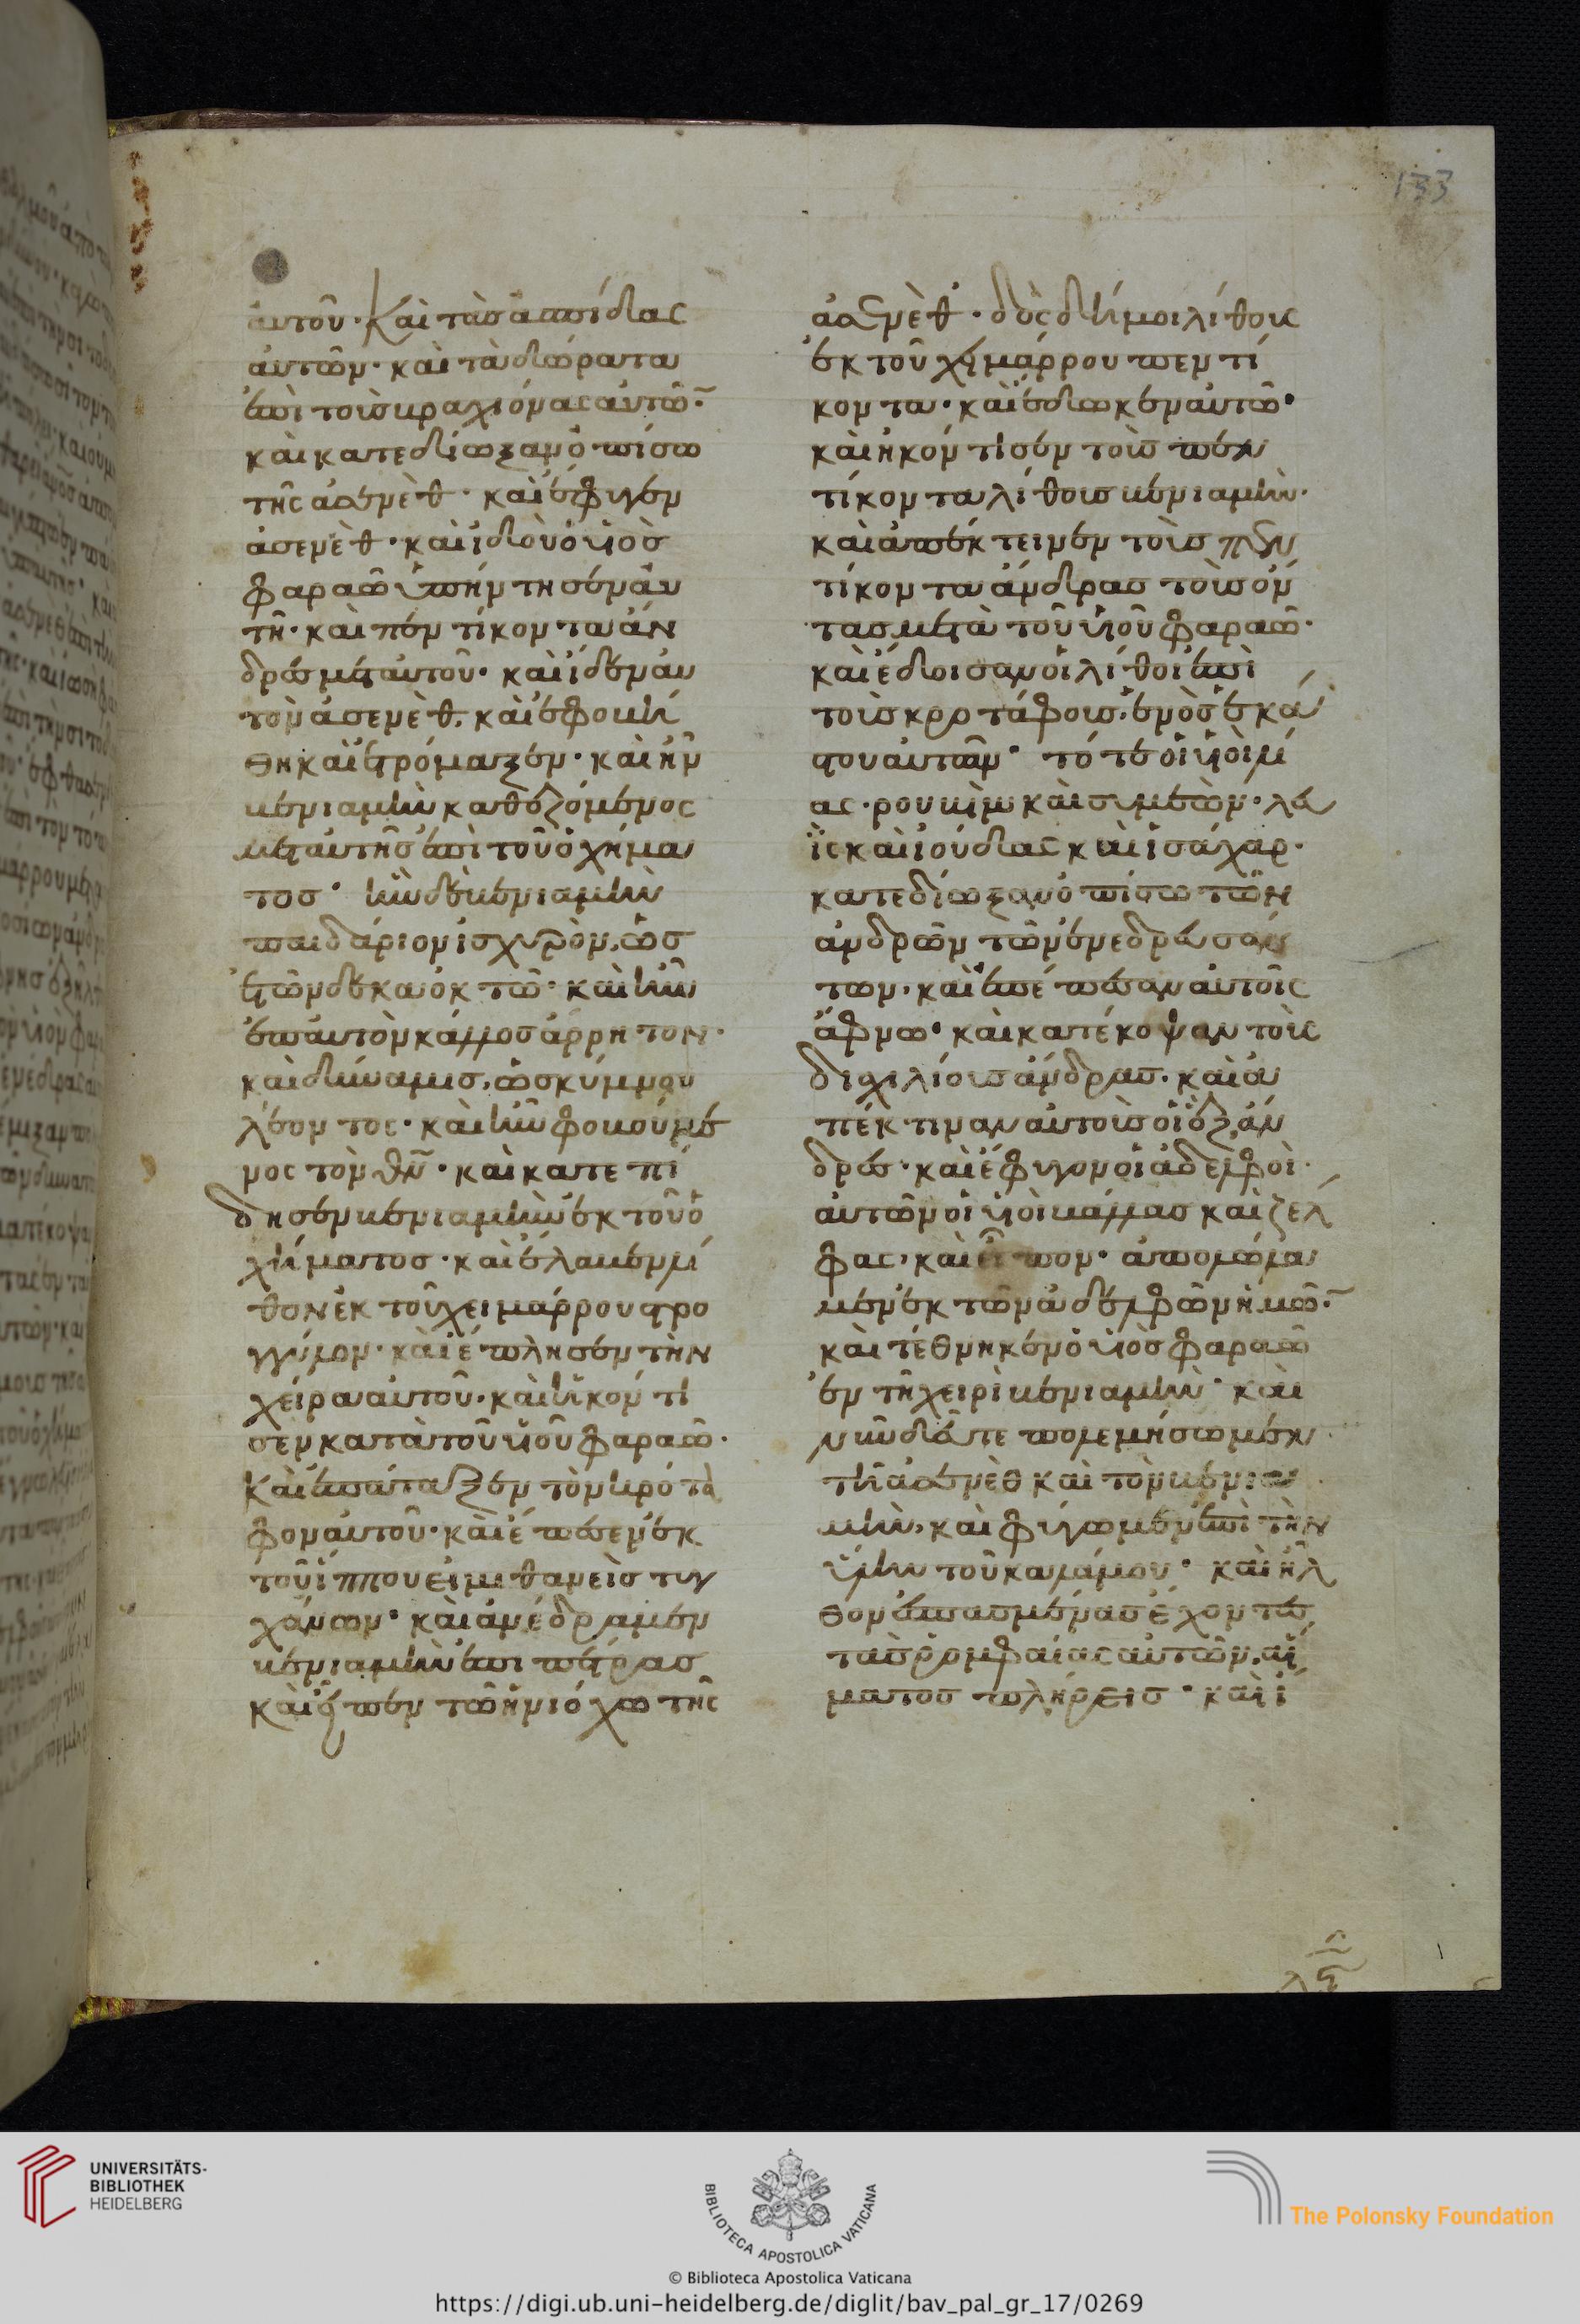 133
αυτοῦ· Καὶ τὰσ ἀσπίδας
αὐτῶν· καὶ τὰ δώρατα
ἐπὶ τοὺσ βραχιόνας αὐτῶ̄·
καὶ κατεδίωξαν ὀπίσω
τῆς ἀσενὲθ· καὶ ἔφυγεν
ἀσενὲθ· καὶ ἰδοὺ ὁ υἱὸσ
φαραῶ ὑπήντησεν αὐ
τῆ· καὶ πέντίκοντα ἄν
δρεσ μετ αὐτοῦ· καὶ ἴδεν αὐ
τὸν ἀσενὲθ, καὶ ἐφοβή
θη καὶ ἐτρόμαξεν· καὶ ἦν
βενιαμὴν καθεζόμενος
μετ αὐτῆσ ἐπὶ τοῦ ὀχήμα
τοσ· ἦν δὲ βενιαμὴν
παιδάριον ἰσχυρὸν, ὡσ
ἐτῶν δέκα ὀκτῶ· καὶ ἦν
ἐπ αυτὸν κάλλοσ ἄρρητον·
καὶ δύναμισ, ὡσ κύμνου
λέοντος· καὶ ἦν φοβούμε
νος τὸν θν̄· καὶ κατεπί
δησεν βενιαμὴν ἐκ τοῦ ὀ
χήματοσ· καὶ ἔλαβεν λί
θον ἐκ τοῦ χειμάρρου στρο
γγύλον· καὶ ἐπλησεν τὴν
χεῖρα αὐτοῦ· καὶ ἠκόντι
σεν κατὰ τοῦ υἱοῦ φαραῶ·
Καὶ ἐπάταξεν τὸν κρότα
φον αὐτοῦ· καὶ ἔπεσεν ἐκ
τοῦ ἵππου εἰμιθανεὶσ τυγ
χάνων· καὶ ἀνέδραμεν
βενιαμὴν ἐπι πέτρασ
καὶ εἶπεν τῶ ἡνιόχω τῆς
ἀσενὲθ· δὸς δή μοι λίθους
ἐκ τοῦ χημάρρου πεντί
κοντα· καὶ ἔδωκεν αὐτῶ·
καὶ ἠκόντισεν τοὺσ πεν
τίκοντα λίθουσ βενιαμὴν·
καὶ ἀπέκτεινεν τοὺσ πεν
τίκοντα ἄνδρασ τοὺσ ὄν
τασ μετὰ τοῦ υἱοῦ φαραῶ·
καὶ ἔδοισαν οἱ λίθοι ἐπὶ
τοὺσ κροτάφουσ, ἑνὸσ ἑκά
στου αὐτῶν· τότε οἱ υἱοὶ λί
ας· ρουβὶμ καὶ συμεὼν· λε
ῒς καὶ ἰούδας καὶ ἰσάχαρ·
κατεδίωξαν ὀπίσω τῶν
ἀνδρῶν τῶν ἐνεδρευσάν
των· καὶ ἐπέπεσαν αὐτοῖς
ἄφνω· καὶ κατέκοψαν τοὺς
διχιλίουσ ἄνδρασ· καὶ ἀ
πέκτιναν αὐτοὺσ οἱ ἓξ ἄν
δρεσ· καὶ ἔφυγον οἱ ἀδελφοὶ
αὐτῶν οἱ υἱοὶ βάλλασ καὶ ζελ
φας, καὶ εἶπον· ἀπολώλα
μεν ἐκ τῶν ἀδελφῶν ἡμῶ̄·
καὶ τέθνηκεν ὁ υἱὸσ φαραῶ
ἐν τῆ χειρὶ βενιαμὴν· καὶ
νῦν δεῦτε πολεμήσωμεν
τὴν ἀσενὲθ καὶ τὸν βενια
μὴν, καὶ φύγωμεν ἐπὶ τὴν
ὕλην τοῦ καλάμου· καὶ ἦλ
θον ἐπασμένασ ἔχοντεσ
τὰσ ρομφαίας αὐτῶν, αἵ
ματοσ πλήρεισ· καὶ ἴ
UNIVERSITÄTS-
BIBLIOTHEK
HEIDELBERG
BIBLIOTECA APOSTOLICA VATICANA
The Polonsky Foundation
© Biblioteca Apostolica Vaticana
https://digi.ub.uni-heidelberg.de/diglit/bav_pal_gr_17/0269